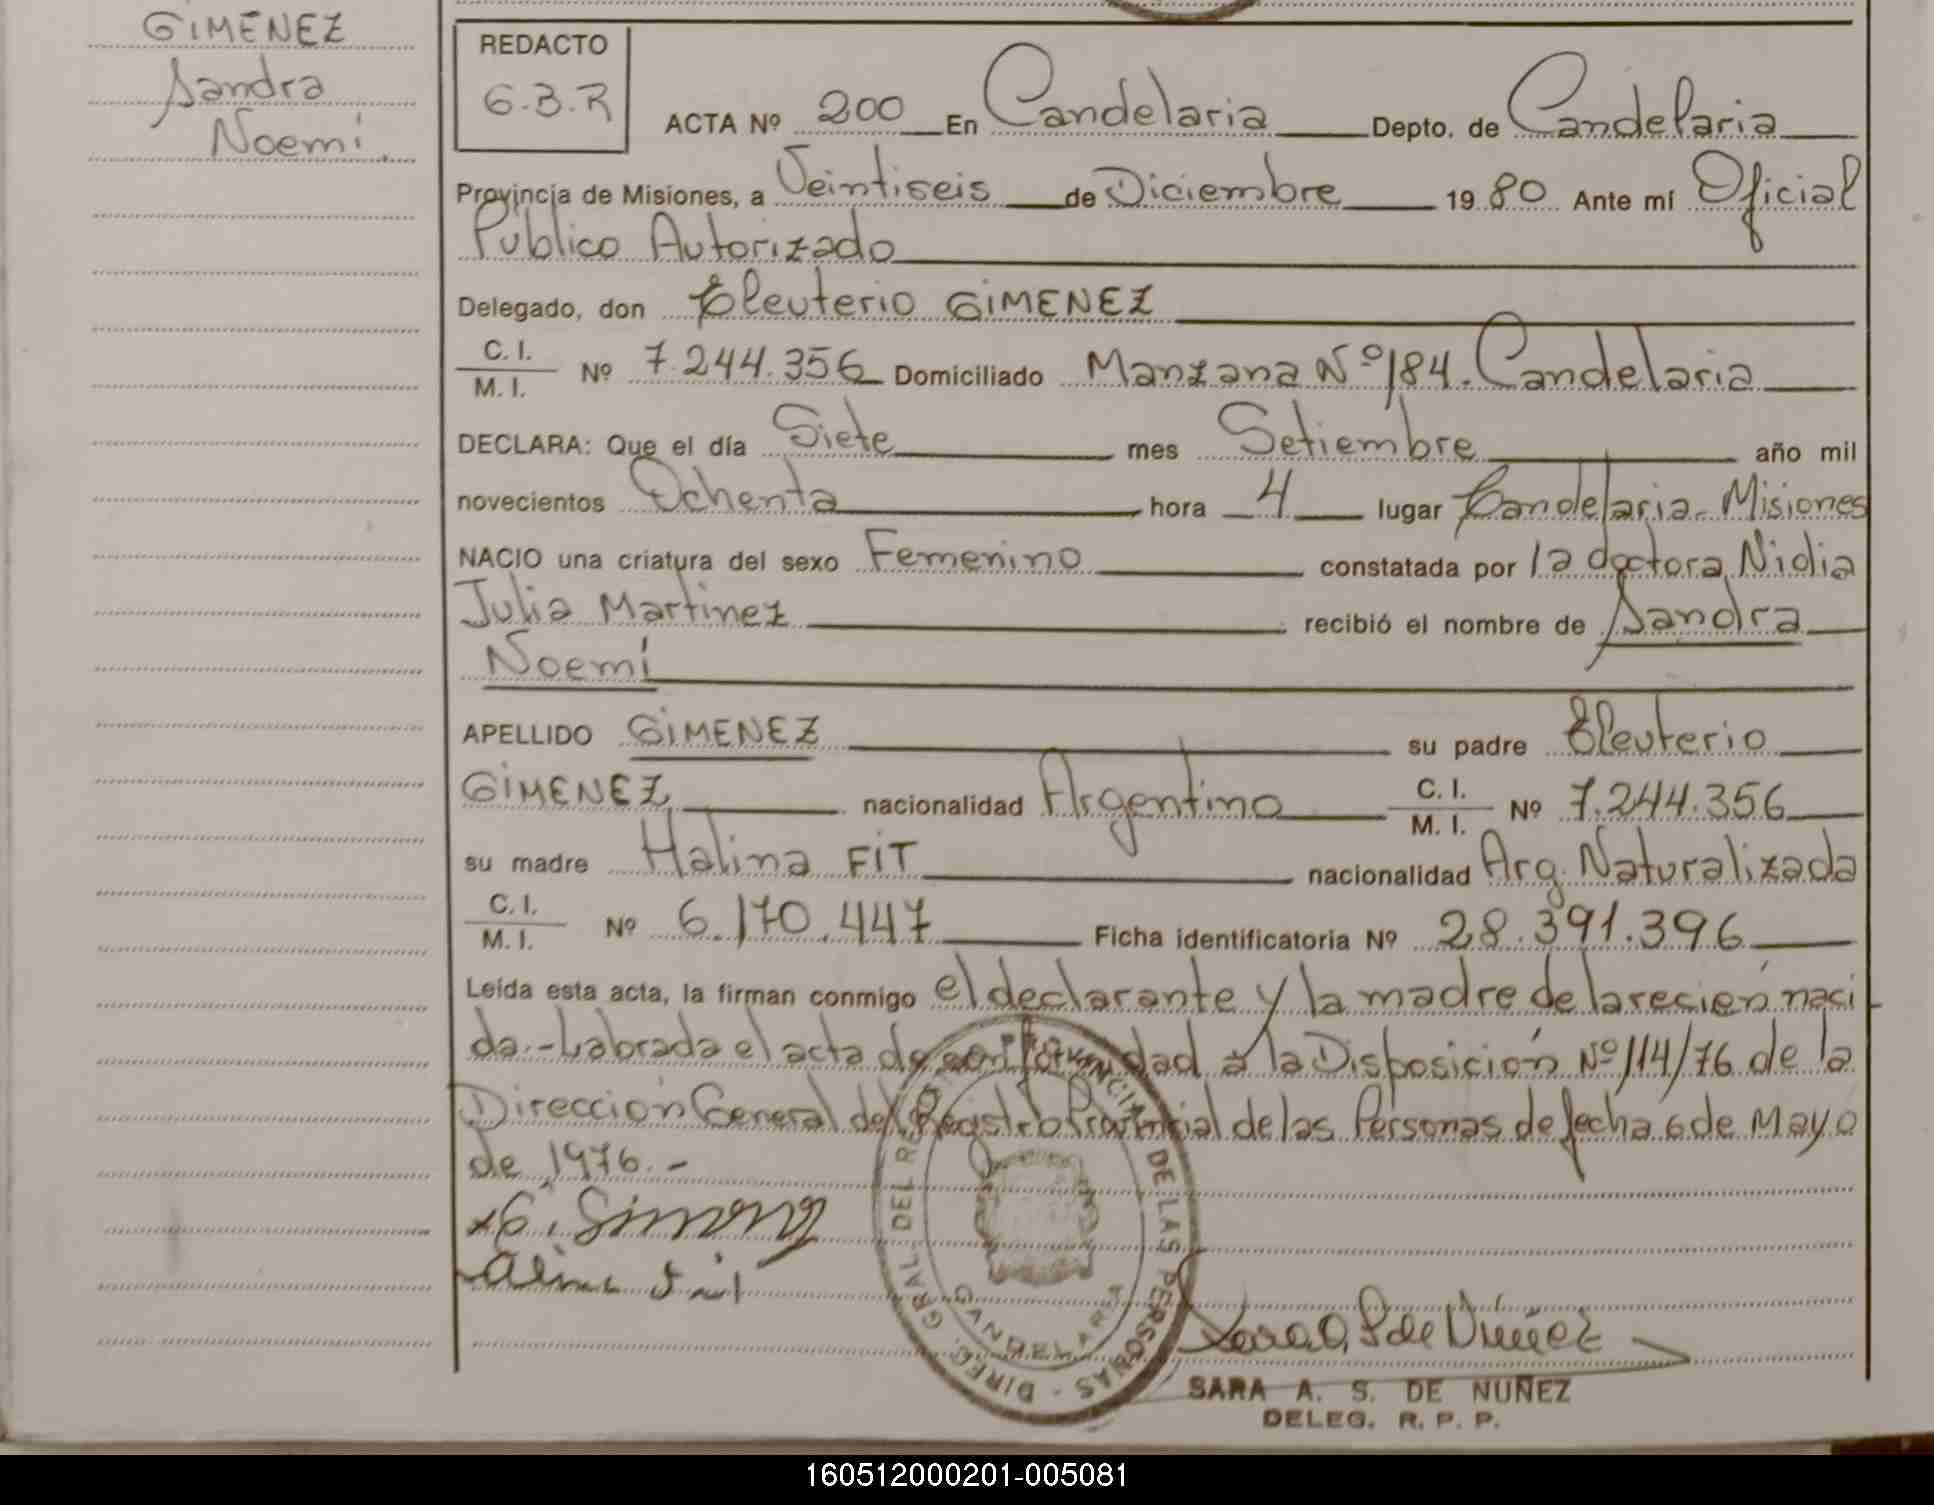 GIMENEZ
Sandra
Noemí.
REDACTO
G.B.R
ACTA Nº 200 En Candelaria Depto. de Candelaria
Provincia de Misiones, a Veintiseis de Diciembre 1980 Ante mí Oficial
Publico Autorizado
Delegado, don Eleuterio GIMENEZ
C. I.
M. I. Nº 7.244.356 Domiciliado Manzana Nº 184. Candelaria
DECLARA: Que el día Siete mes Setiembre año mil
novecientos Ochenta hora 4 lugar Candelaria-Misiones
NACIO una criatura del sexo Femenino constatada por la doctora Nidia
Julia Martinez recibió el nombre de Sandra
Noemí
APELLIDO GIMENEZ su padre Eleuterio
GIMENEZ nacionalidad Argentino C. I. M. I. Nº 7.244.356
su madre Halina FIT nacionalidad Arg. Naturalizada
C. I.
M. I. Nº 6.170.447 Ficha identificatoria Nº 28.391.396
Leída esta acta, la firman conmigo el declarante y la madre de la recién naci
da.-Labrada el acta de conformidad a la Disposición Nº 114/76 de la
Dirección General del Registro Provincial de las Personas de fecha 6 de Mayo
de 1976.-
DIREC. GRAL. DEL DE LAS PERSONAS
CANDELARIA
SARA A. S. DE NUÑEZ
DELEG. R. P. P.
160512000201-005081